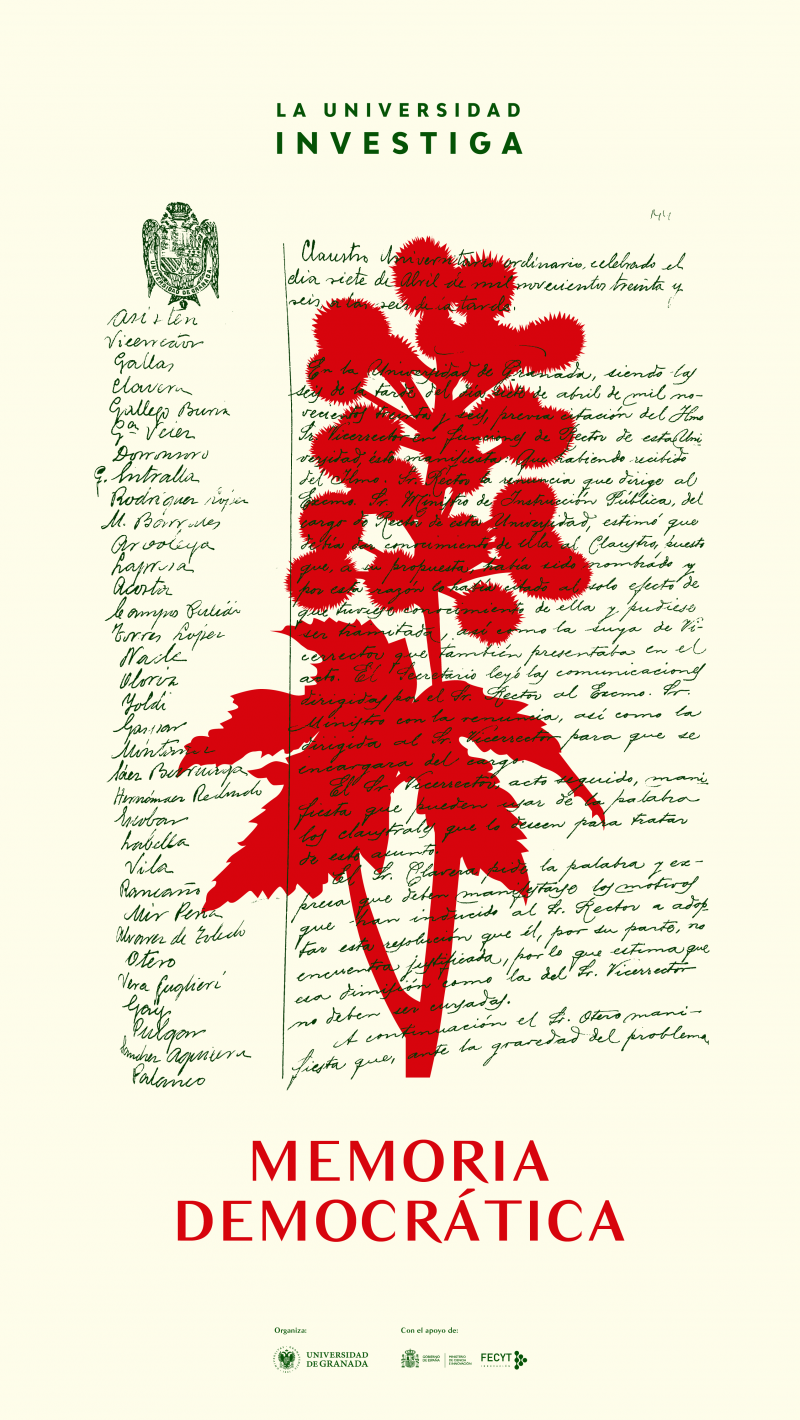 LA UNIVERSIDAD
INVESTIGA
144
UNIVERSIDAD DE GRANADA
Asisten
Vicerrector
Gallas
Clavera
Gallego Burín
Gª Veier
Dominino
G. Intralla
Rodríguez López
M. Barrales
Acosta
Campos Pulido
Torres López
Nacle
Oloroz
Yoldi
Gassar
Hernández Redondo
Escobar
Labella
Vila
Rancaño
Mir Pena
Alvarez de Toledo
Otero
Vera Guglieri
Gay
Pulgar
Sanchez Aguilera
Palanco
Claustro Universitario ordinario, celebrado el
dia siete de Abril de mil novecientos treinta y
seis a las seis de la tarde.
En la Universidad de Granada, siendo las
seis de la tarde del dia siete de abril de mil no-
vecientos treinta y seis, previa citación del Ilmo
Sr. Vicerrector en funciones de Rector de esta Uni-
versidad, éste manifiesta: Que habiendo recibido
del Ilmo. Sr. Rector la renuncia que dirige al
Excmo. Sr. Ministro de Instrucción Pública, del
cargo de Rector de esta Universidad, estimó que
debía dar conocimiento de ella al Claustro, puesto
que, a su propuesta había sido nombrado y
por esta razón lo había citado al solo efecto de
que tuviese conocimiento de ella y pudiese
ser tramitada, así como la suya de Vi-
cerrector que también presentaba en el
acto. El Secretario leyó las comunicaciones
dirigidas por el Sr. Rector al Excmo. Sr.
Ministro con la renuncia, así como la
dirigida al Sr. Vicerrector para que se
encargara del cargo.
El Sr. Vicerrector, acto seguido, mani-
fiesta que pueden usar de la palabra
los claustrales que lo deseen para tratar
de este asunto.
El Sr. Clavera pide la palabra y ex-
presa que deben manifestarse los motivos
que han inducido al Sr. Rector a adop-
tar esta resolución que él, por su parte, no
encuentra justificada, por lo que estima que
esa dimisión como la del Sr. Vicerrector
no deben ser cursadas.
A continuación el Sr. Otero mani-
fiesta que, ante la gravedad del problema
MEMORIA
DEMOCRÁTICA
Organiza:
Con el apoyo de:
UNIVERSIDAD
DE GRANADA
GOBIERNO
DE ESPAÑA
MINISTERIO
DE CIENCIA
E INNOVACIÓN
FECYT
INNOVACIÓN